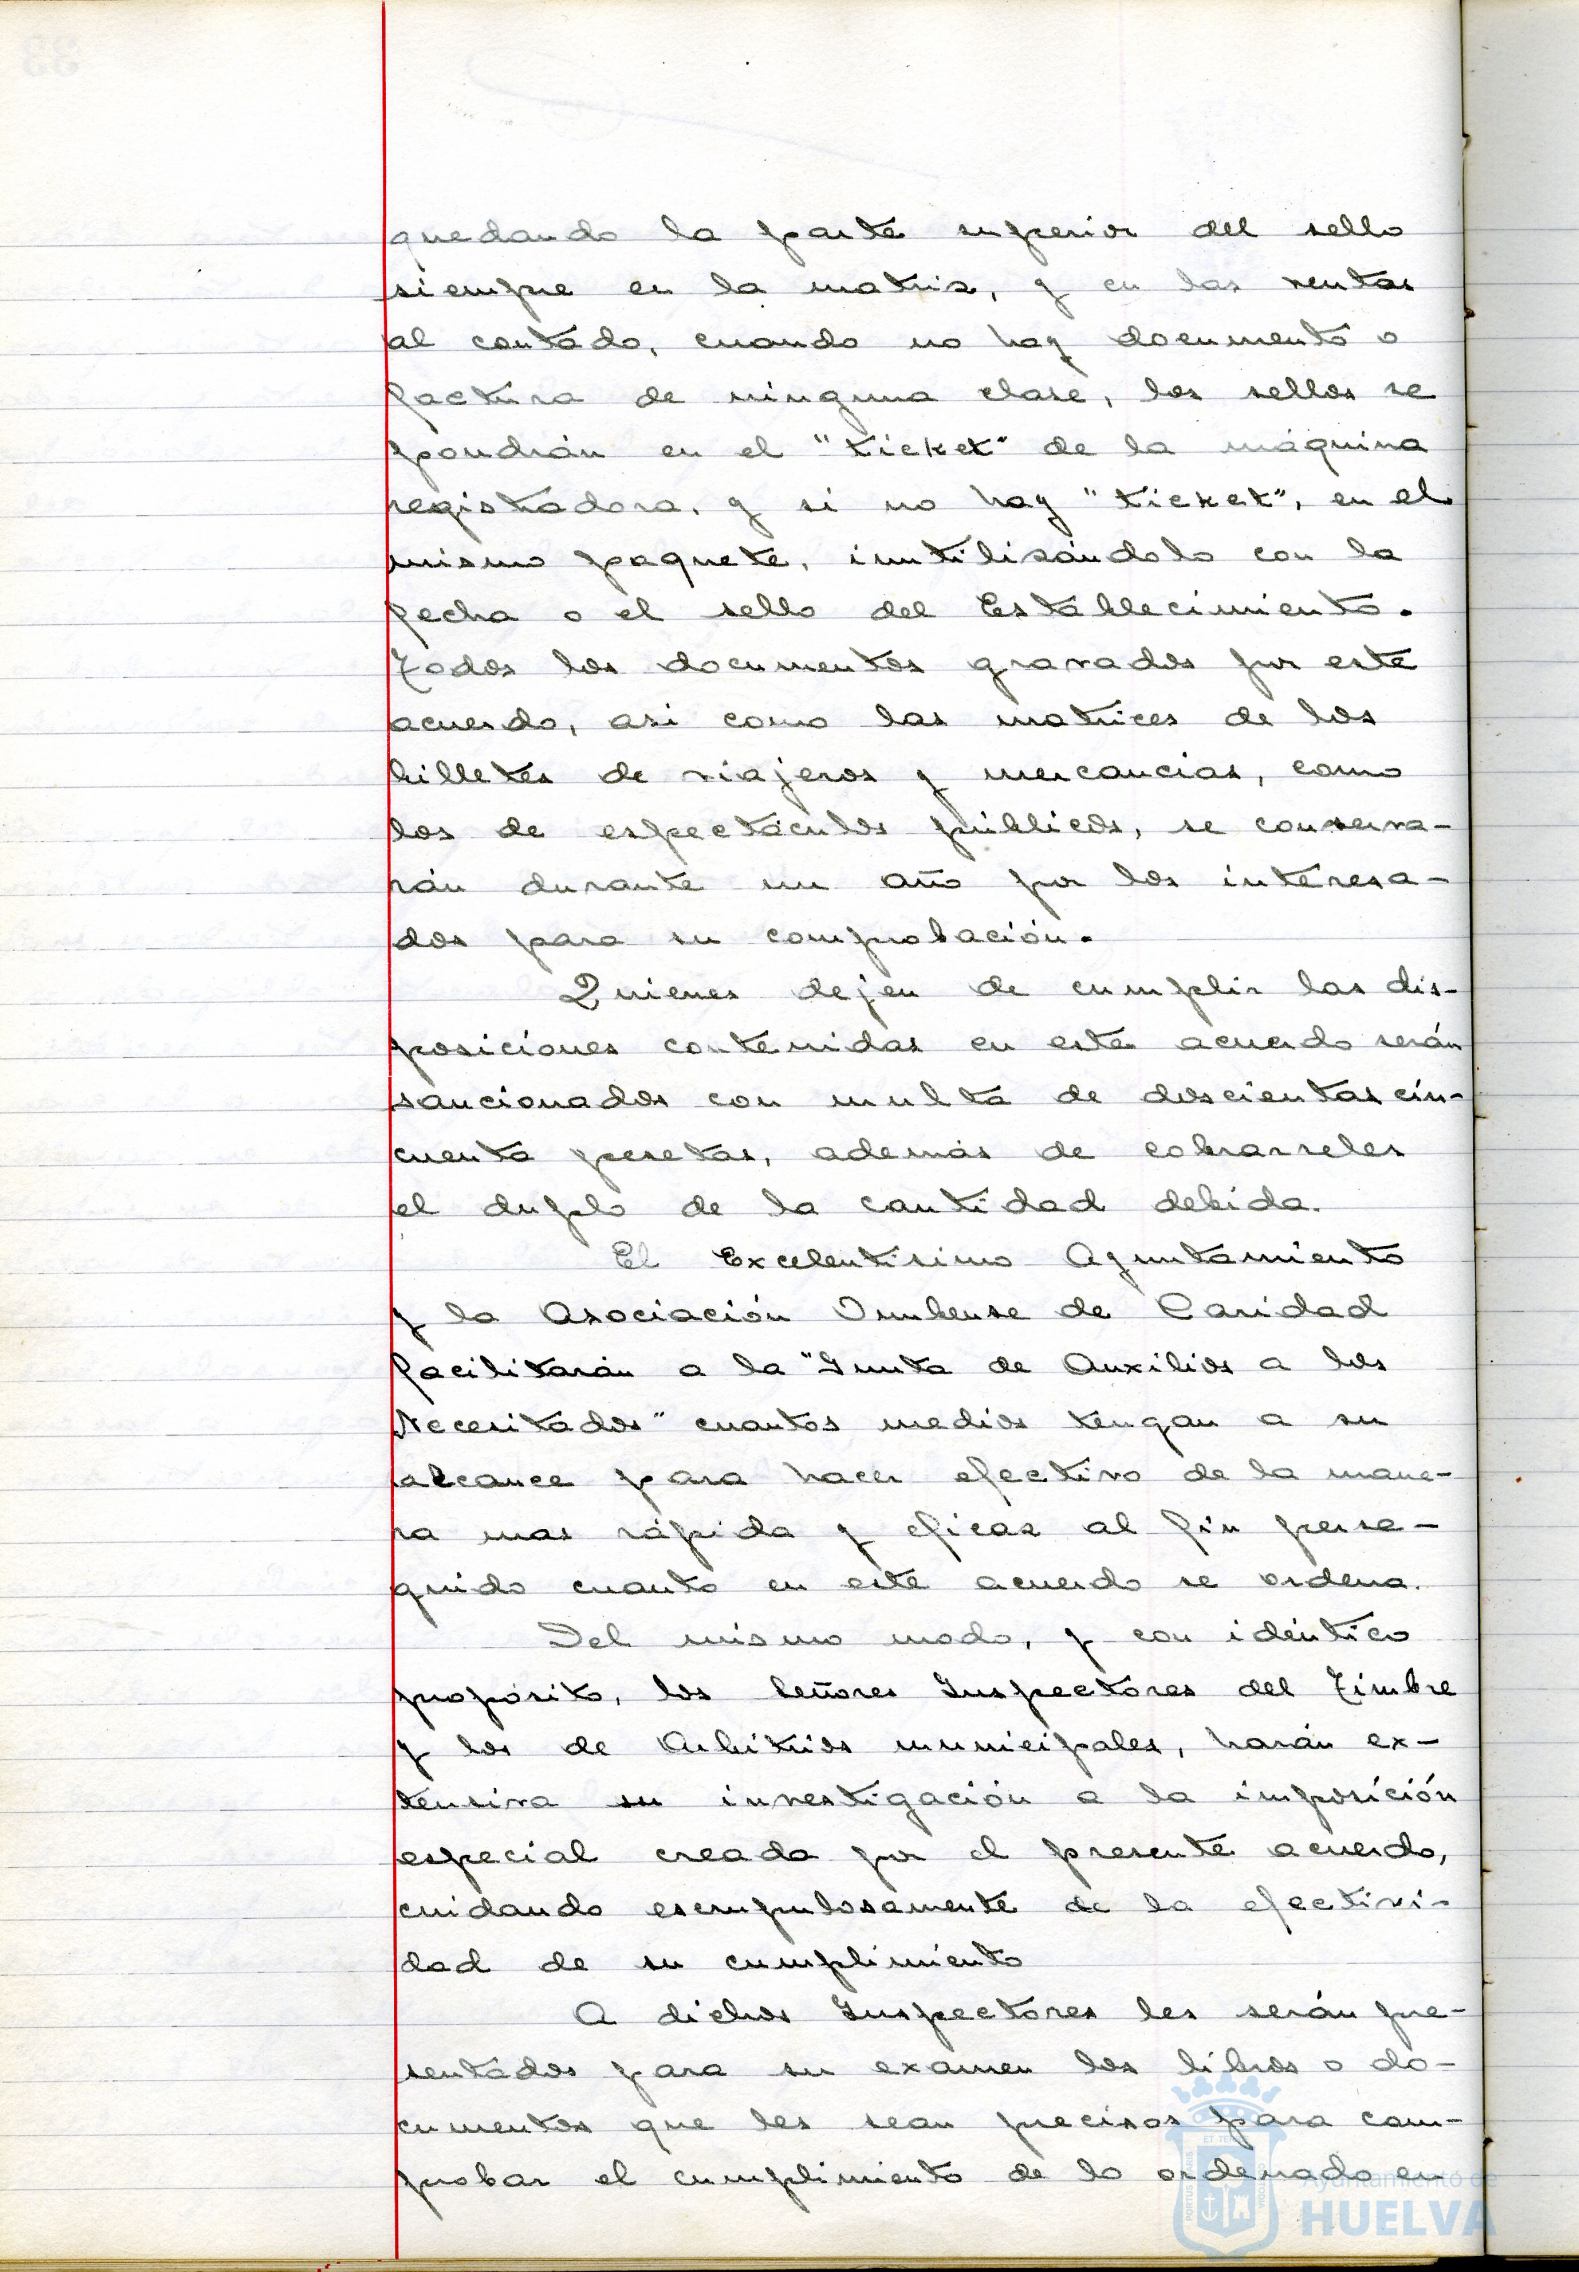 quedando la parte superior del sello
siempre en la matriz, y en las ventas
al contado, cuando no hay documento o
factura de ninguna clase, los sellos se
pondrán en el "ticket" de la máquina
registradora, y si no hay "ticket", en el
mismo paquete, inutilizándolo con la
fecha o el sello del Establecimiento.
Todos los documentos gravados por este
acuerdo, asi como las matrices de los
billetes de viajeros y mercancías, como
los de espectáculos públicos, se conserva-
rán durante un año por los interesa-
dos para su comprobación.
Quienes dejen de cumplir las dis-
posiciones contenidas en este acuerdo serán
sancionados con multa de doscientas cin-
cuenta pesetas, además de cobrarseles
el duplo de la cantidad debida.
El Excelentísimo Ayuntamiento
y la Asociación Onubense de Caridad
facilitarán a la "Junta de Auxilios a los
Necesitados" cuantos medios tengan a su
alcance para hacer efectivo de la mane-
ra mas rápida y eficaz al fin perse-
guido cuanto en este acuerdo se ordena.
Del mismo modo, y con idéntico
propósito, los Señores Inspectores del Timbre
y los de Arbitrios municipales, harán ex-
tensiva su investigación a la imposición
especial creada por el presente acuerdo,
cuidando escrupulosamente de la efectivi-
dad de su cumplimiento
A dichos Inspectores les serán pre-
sentados para su examen los libros o do-
cumentos que les sean precisos para com-
probar el cumplimiento de lo ordenado en
Ayuntamiento de
HUELVA